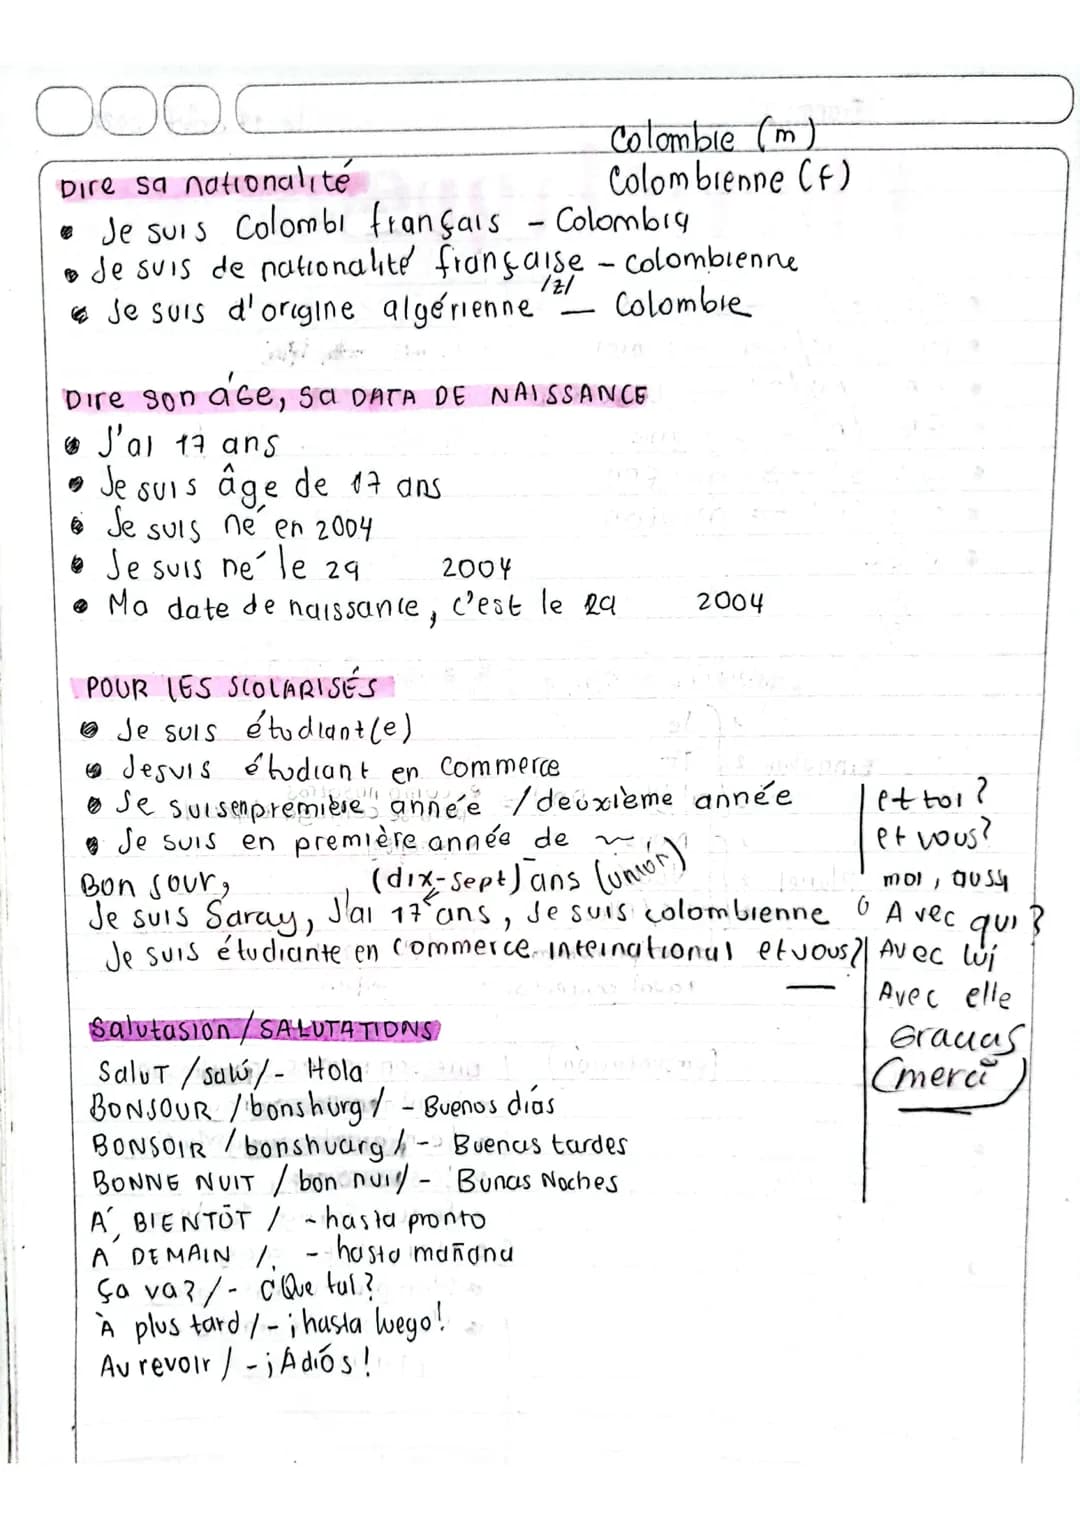 Colombie (m)
Colombienne (f)
Dire sa nationalité
Je suis Colombi français - Colombia
Je suis de nationalité française - colombienne
/z/
Je suis d'origine algérienne — Colombie
Dire son áGe, sa DATA DE NAISSANCE
J'ai 17 ans
Je suis âge de 17 ans
Je suis né en 2004
Je suis né le 29 2004
Ma date de naissance, c'est le 29 2004
POUR LES SCOLARISÉS
Je suis étudiant(e)
Je suis étudiant en Commerce
Je suis en première année / deuxième année
Je suis en première année de
Bon Jour, (dix-sept) ans (union)
Je suis Saray, J'ai 17 ans, Je suis colombienne
Je suis étudiante en Commerce international et vous?
et toi?
et vous?
moi, aussy
Avec qui?
Avec lui
Avec elle
Gracias
(merci)
Salutasion / SALUTATIONS
SaluT /salú/ - Hola
BONJOUR /bonshurg/ - Buenos días
BONSOIR /bonshuarg/ - Buenas tardes
BONNE NUIT /bon nui/ - Bunas Noches
Á BIENTÔT / - hasta pronto
Á DEMAIN / - hasta mañana
Ça va? / - ¿Que tal?
À plus tard / - ¡hasta luego!
Au revoir / - ¡Adiós!